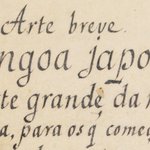 Arte breve
ngoa Japo
te grande da n
a, para os q̃ começ